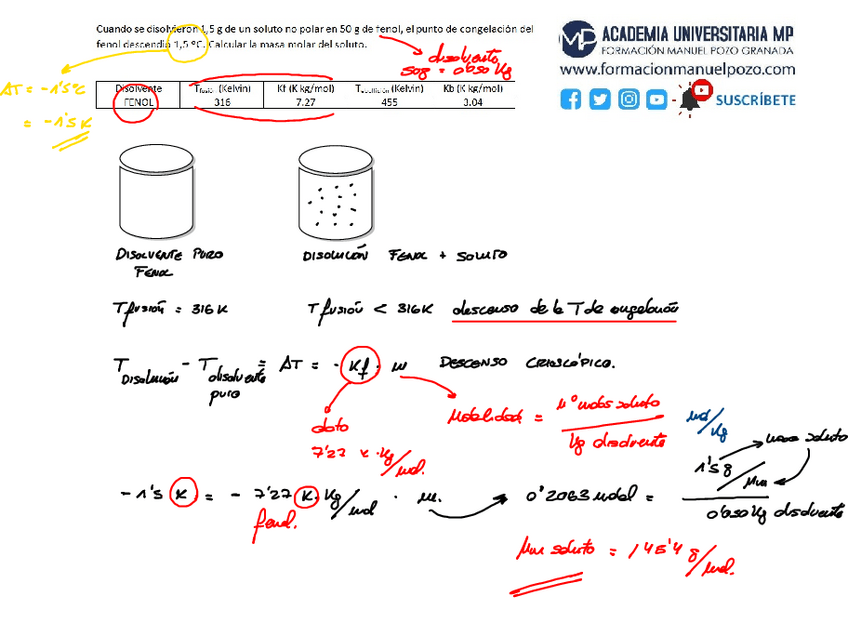 Cuando se disolvieron 1,5 g de un soluto no polar en 50 g de fenol, el punto de congelación del
fenol descendió 1,5 ºC. Calcular la masa molar del soluto.
disolvente
50g = 0'050 Kg
MP ACADEMIA UNIVERSITARIA MP
FORMACIÓN MANUEL POZO GRANADA
www.formacionmanuelpozo.com
SUSCRÍBETE
ΔT = -1'5ºC
= -1'5 K
Disolvente Tfusión (Kelvin) Kf (K kg/mol) Tebullición (Kelvin) Kb (K kg/mol)
FENOL 316 7.27 455 3.04
DISOLVENTE PURO
FENOL
DISOLUCIÓN FENOL + SOLUTO
T fusión = 316 K
T fusión < 316K descenso de la T de congelación
T Disolución - T disolvente puro = ΔT = - Kf · m DESCENSO CRIOSCÓPICO.
dato
7'27 K·Kg/mol.
Molalidad = nº moles soluto / Kg disolvente
mol/Kg
-1'5 K = - 7'27 K·Kg/mol · m.
fenol.
0'2063 molal = 1'5 g / Mm / 0'050 Kg disolvente
masa soluto
Mm soluto = 145'4 g/mol.